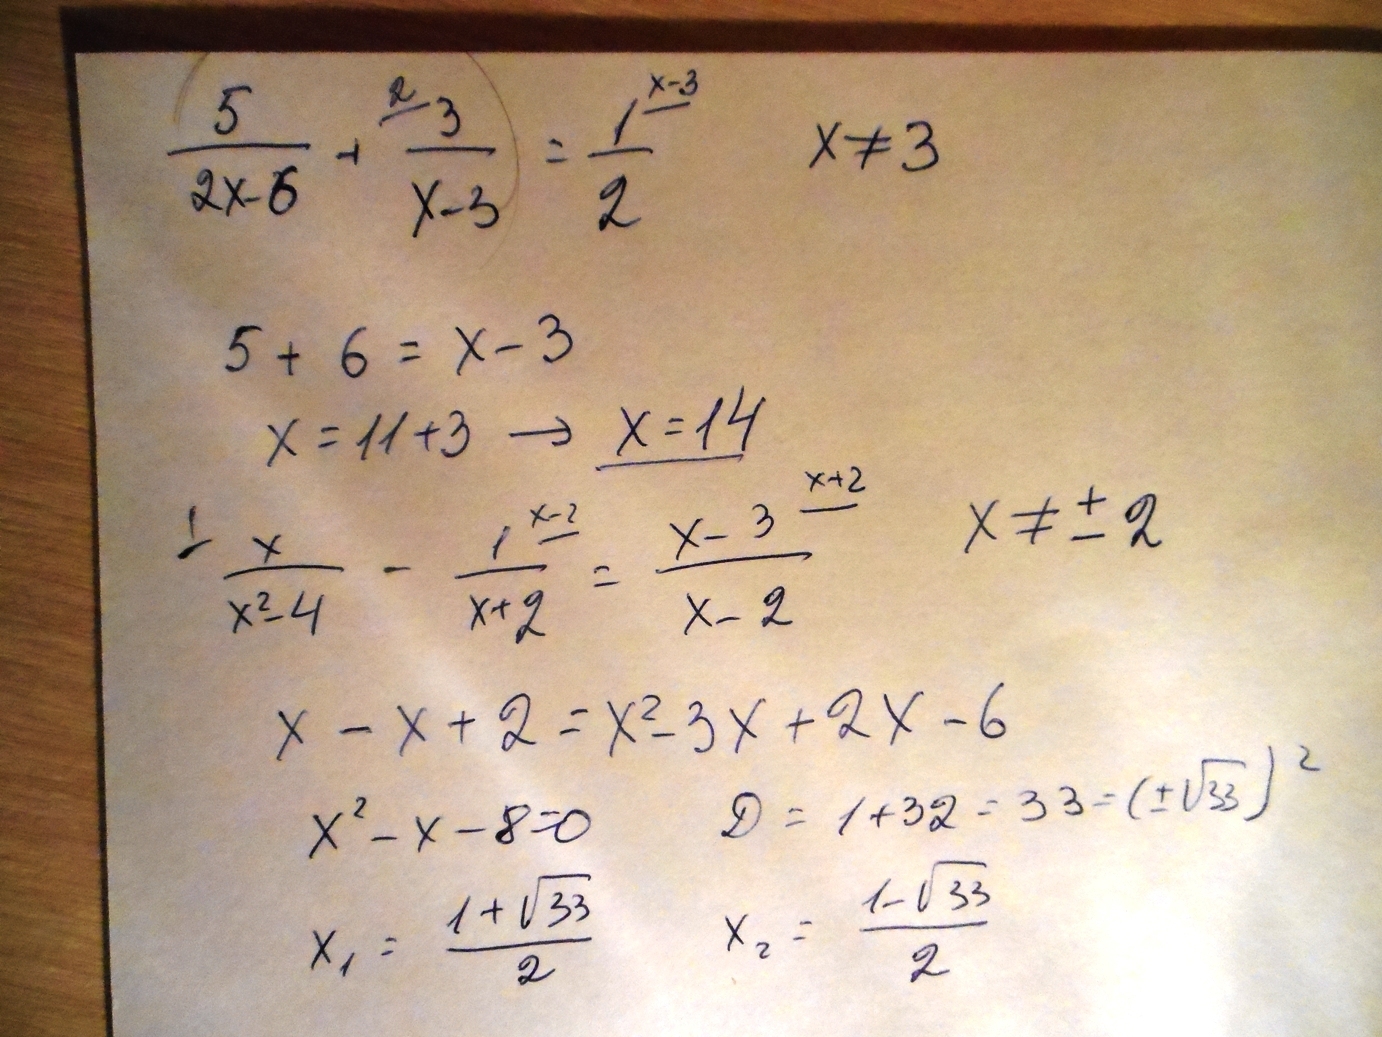 5/(2x-6) + 3/(x-3) ² = 1/2 ˣ⁻³   x ≠ 3
5 + 6 = x - 3
x = 11 + 3 → x = 14
¹ x/(x²-4) - 1/(x+2) ˣ⁻² = (x-3)/(x-2) ˣ⁺²   x ≠ ± 2
x - x + 2 = x² - 3x + 2x - 6
x² - x - 8 = 0   D = 1 + 32 = 33 = (±√33)²
x₁ = (1+√33)/2   x₂ = (1-√33)/2